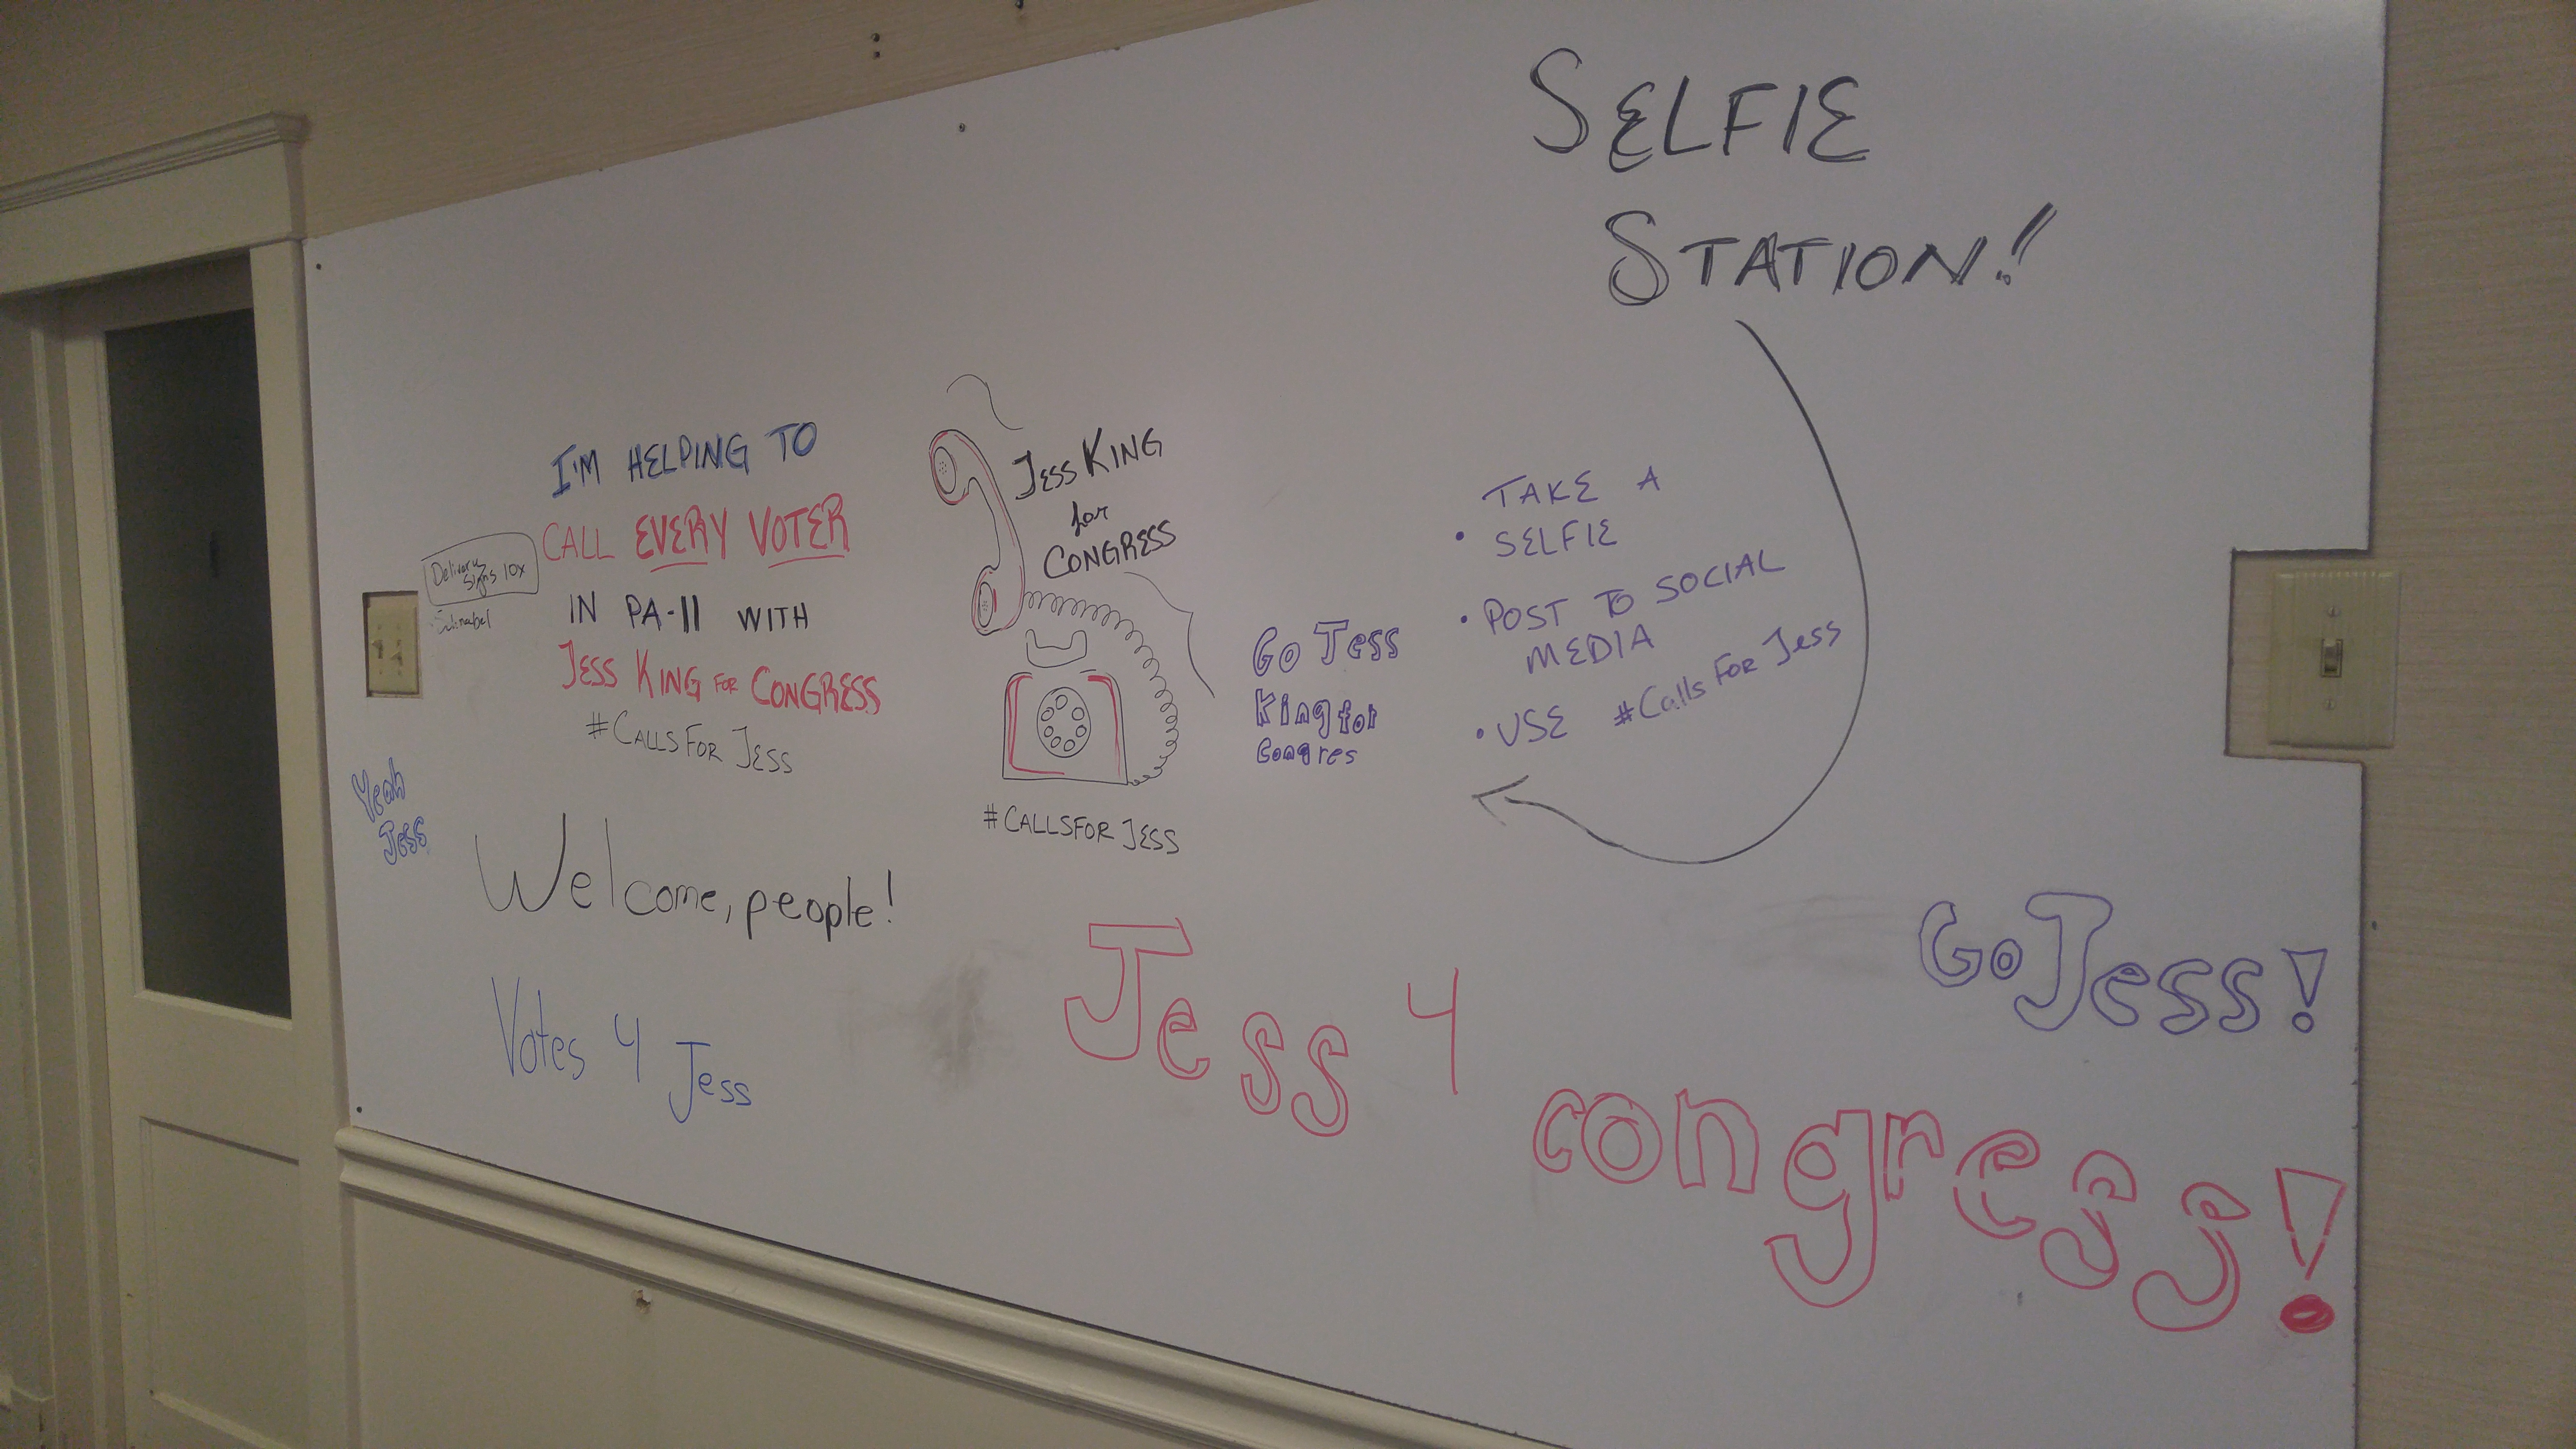 SELFIE
STATION!
I'M HELPING TO
CALL EVERY VOTER
IN PA-11 WITH
JESS KING FOR CONGRESS
#CALLSFOR JESS
Delivery
Signs 10x
Schnabel
Yeah
Jess
JESS KING
for
CONGRESS
#CALLSFOR JESS
GO Jess
King for
Congres
• TAKE A
SELFIE
• POST TO SOCIAL
MEDIA
• USE #Calls For Jess
Welcome, people!
Votes 4 Jess
Go Jess!
Jess 4
congress!